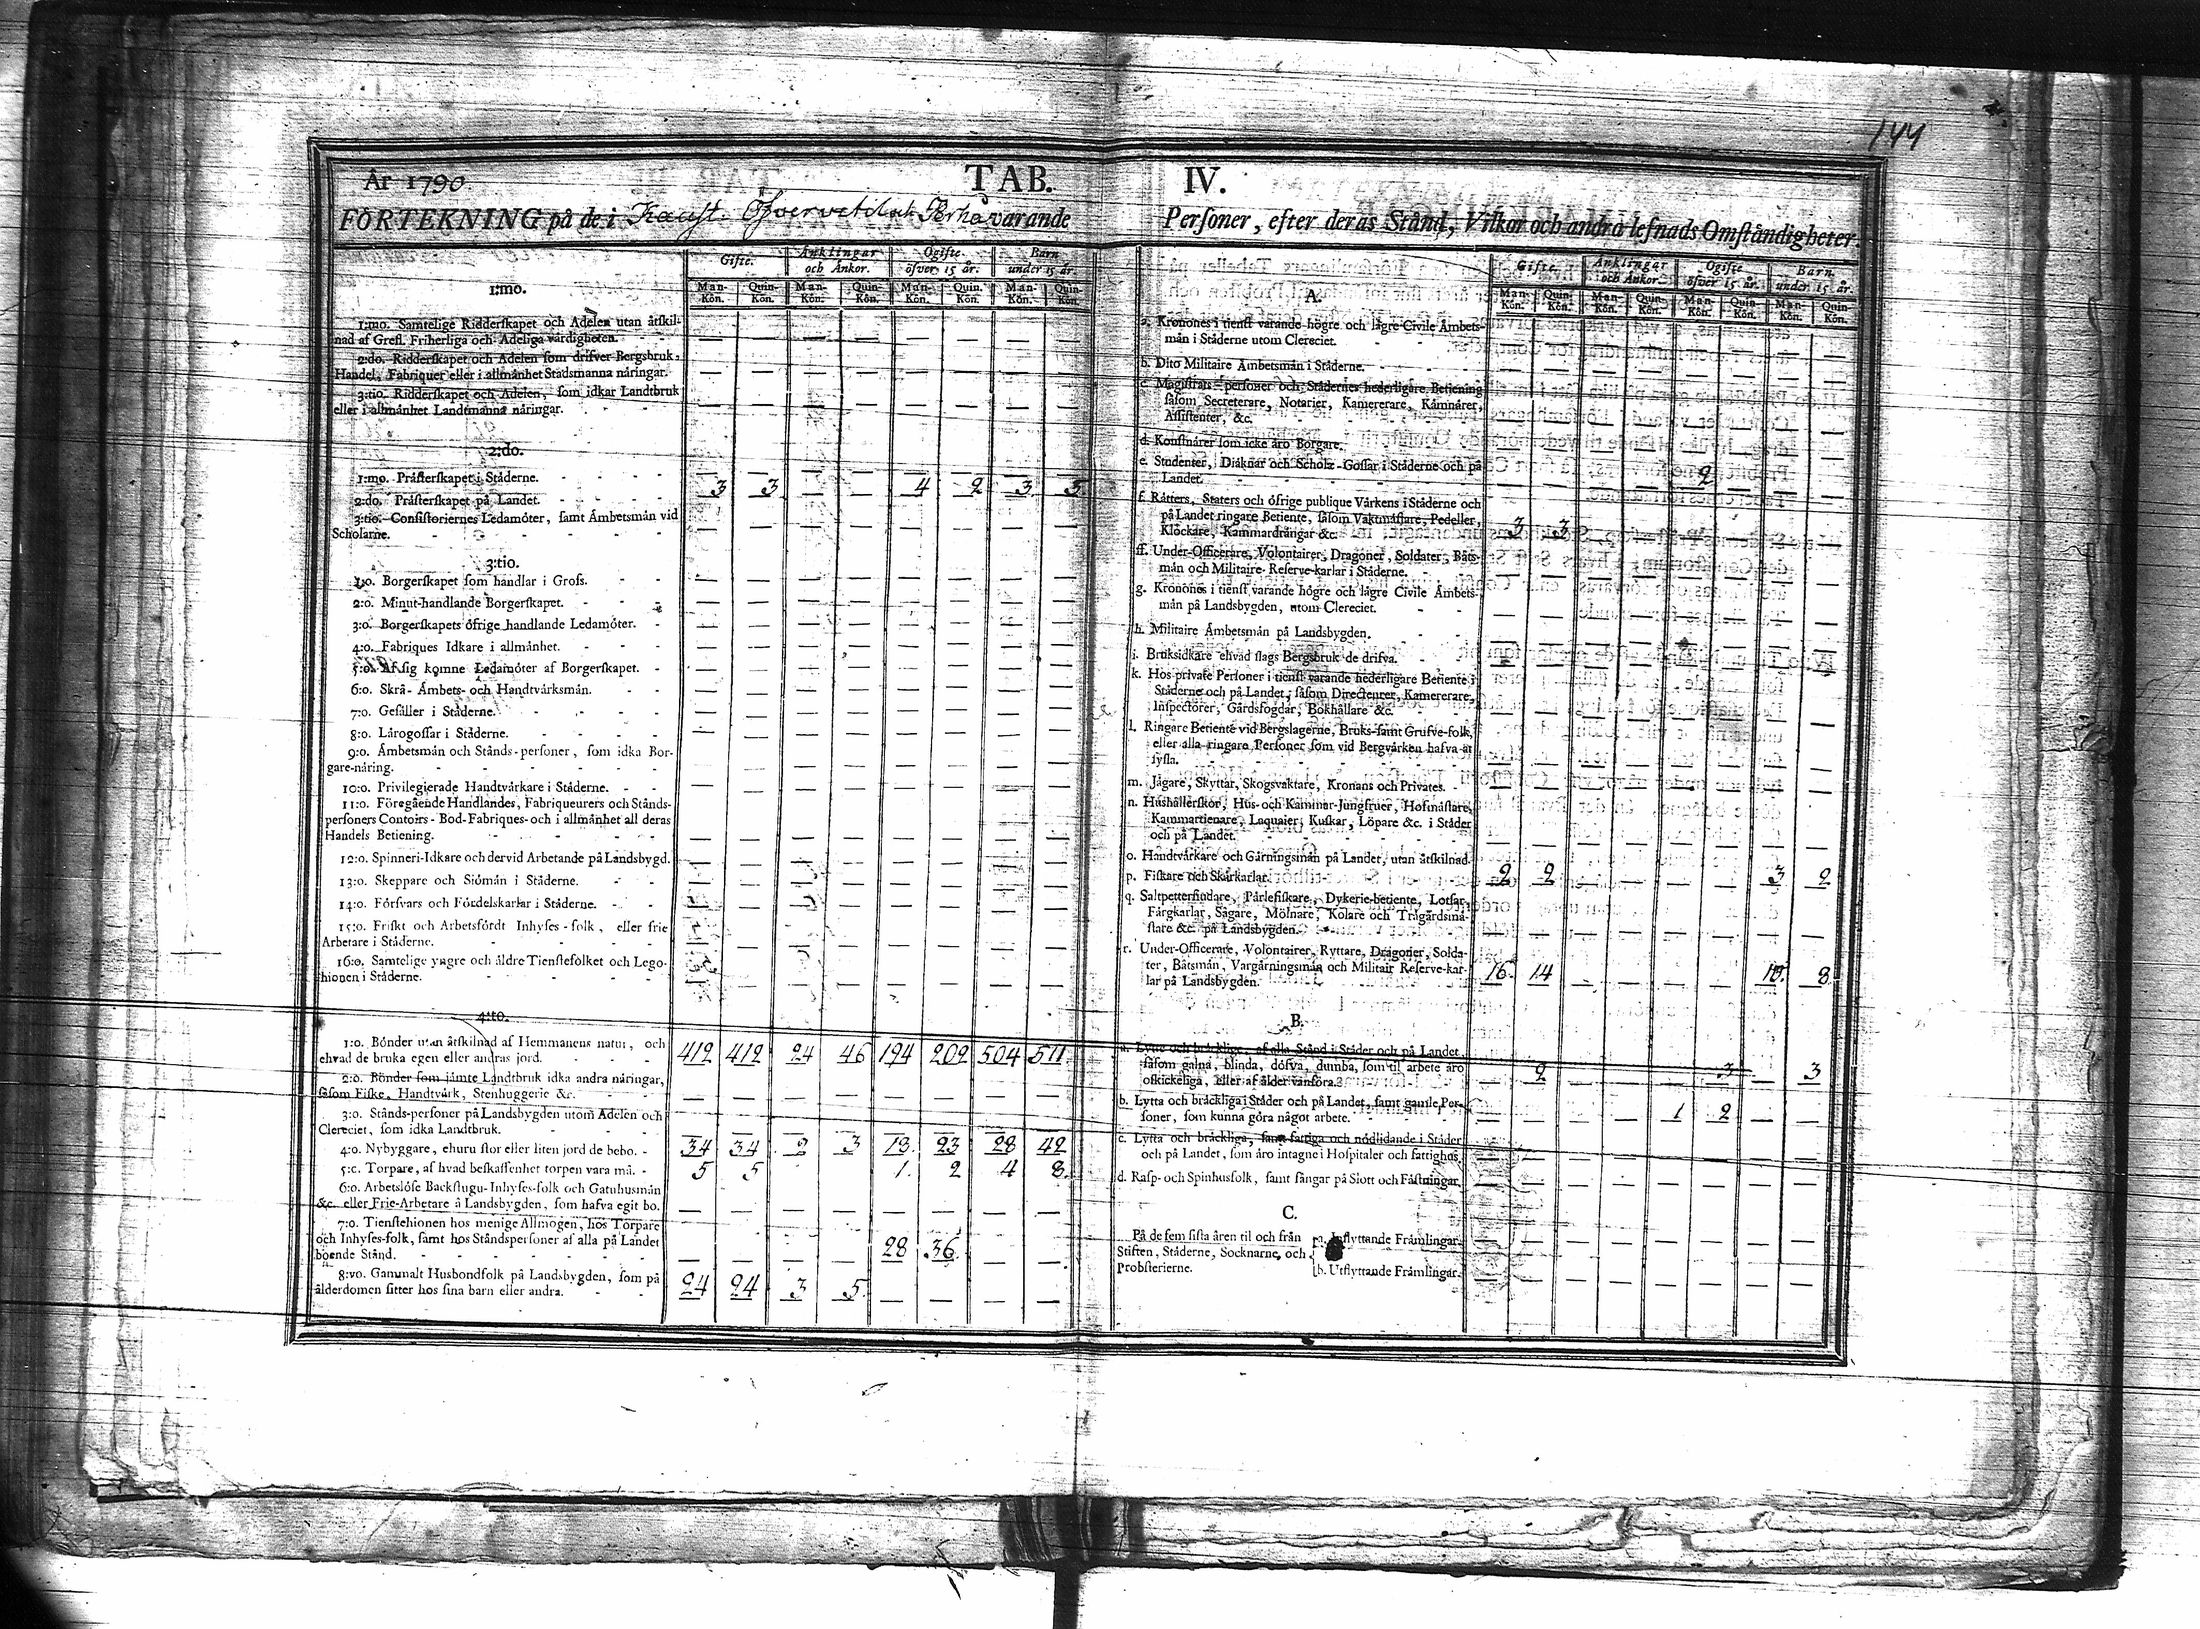 144
År 1790 TAB. IV.
FÖRTEKNING på de i varande Personer, efter deras Stånd, Vilkor och andra lefnads Omståndigheter.
Gifte. Ånklingar och Ånkor. Ogifte öfver 15 år. Barn under 15 år.
Man-Kön. Quin-Kön. Man-Kön. Quin-Kön. Man-Kön. Quin-Kön. Man-Kön. Quin-Kön.
1:mo.
1:mo. Samtelige Ridderskapet och Adelen utan åtskil-
nad af Grefl. Friherliga och Adeliga vårdigheten. — — — — — — — —
2:do. Ridderskapet och Adelen som drifver Bergsbruk,
Handel, Fabriquer eller i allmånhet Stadsmanna nåringar. — — — — — — — —
3:tio. Ridderskapet och Adelen, som idkar Landtbruk
eller i allmånhet Landtmanna nåringar. — — — — — — — —
2:do.
1:mo. Pråsterskapet i Ståderne. — — — — — — — —
2:do. Pråsterskapet på Landet. 3 3 — — 4 2 3 5
3:tio. Consistoriernes Ledamöter, samt Åmbetsmån vid
Scholarne. — — — — — — — —
3:tio.
1:o. Borgerskapet som handlar i Gross. — — — — — — — —
2:o. Minut-handlande Borgerskapet. — — — — — — — —
3:o. Borgerskapets öfrige handlande Ledamöter. — — — — — — — —
4:o. Fabriques Idkare i allmånhet. — — — — — — — —
5:o. Af sig komne Ledamöter af Borgerskapet. — — — — — — — —
6:o. Skrå- Åmbets- och Handtvårksmån. — — — — — — — —
7:o. Gesåller i Ståderne. — — — — — — — —
8:o. Lårogossar i Ståderne. — — — — — — — —
9:o. Åmbetsmån och Stånds-personer, som idka Bor-
gare-nåring. — — — — — — — —
10:o. Privilegierade Handtvårkare i Ståderne. — — — — — — — —
11:o. Föregående Handlandes, Fabriqueurers och Stånds-
personers Contoirs- Bod-Fabriques- och i allmånhet all deras
Handels Betiening. — — — — — — — —
12:o. Spinneri-Idkare och dervid Arbetande på Landsbygd. — — — — — — — —
13:o. Skeppare och Siömån i Ståderne. — — — — — — — —
14:o. Försvars och Fördelskarlar i Ståderne. — — — — — — — —
15:o. Friskt och Arbetsfördt Inhyses-folk, eller frie
Arbetare i Ståderne. — — — — — — — —
16:o. Samtelige yngre och åldre Tienstefolket och Lego-
hionen i Ståderne. — — — — — — — —
4:to.
1:o. Bönder utan åtskilnad af Hemmanens natur, och
ehvad de bruka egen eller andras jord. 412 412 24 46 194 202 504 511
2:o. Bönder som jåmte Landtbruk idka andra nåringar,
såsom Fiske, Handtvårk, Stenhuggerie &c. — — — — — — — —
3:o. Stånds-personer på Landsbygden utom Adelen och
Clereciet, som idka Landtbruk. — — — — — — — —
4:o. Nybyggare, ehuru stor eller liten jord de bebo. 34 34 2 3 13 23 28 42
5:o. Torpare, af hvad beskaffenhet torpen vara må. 5 5 1 2 4 8
6:o. Arbetslöse Backstugu-Inhyses-folk och Gatuhusmån
&c. eller Frie-Arbetare å Landsbygden, som hafva egit bo. — — — — — — — —
7:o. Tienstehionen hos menige Allmogen, hos Torpare
och Inhyses-folk, samt hos Ståndspersoner af alla på Landet
boende Stånd. — — — — 28 36 — —
8:vo. Gammalt Husbondfolk på Landsbygden, som på
ålderdomen sitter hos sina barn eller andra. 24 24 3 5 — — — —
Gifte. Ånklingar och Ånkor. Ogifte öfver 15 år. Barn under 15 år.
Man-Kön. Quin-Kön. Man-Kön. Quin-Kön. Man-Kön. Quin-Kön. Man-Kön. Quin-Kön.
A.
a. Kronones i tienst varande högre och lågre Civile Åmbets-
mån i Ståderne utom Clereciet. — — — — — — — —
b. Dito Militaire Åmbetsmån i Ståderne. — — — — — — — —
c. Magistrats-personer och Stådernes hederligare Betiening
såsom Secreterare, Notarier, Kamererare, Kåmnårer,
Assistenter, &c. — — — — — — — —
d. Konstnårer som icke åro Borgare. — — — — — — — —
e. Studenter, Diåknar och Schole-Gossar i Ståderne och på
Landet. — — — — 2 — — —
f. Råtters, Staters och öfrige publique Vårkens i Ståderne och
på Landet ringare Betiente, såsom Vaktmåstare, Pedeller,
Klockare, Kammardrångar &c. 3 3 — — — — — —
ff. Under-Officerare, Volontairer, Dragoner, Soldater, Båts-
mån och Militaire-Reserve-karlar i Ståderne. — — — — — — — —
g. Kronones i tienst varande högre och lågre Civile Åmbets-
mån på Landsbygden, utom Clereciet. — — — — — — — —
h. Militaire Åmbetsmån på Landsbygden. — — — — — — — —
i. Bruksidkare ehvad slags Bergsbruk de drifva. — — — — — — — —
k. Hos private Personer i tienst varande hederligare Betiente i
Ståderne och på Landet, såsom Directeurer, Kamererare,
Inspectorer, Gårdsfogdar, Bokhållare &c. — — — — — — — —
l. Ringare Betiente vid Bergslagerne, Bruks-samt Grufve-folk,
eller alla ringare Personer som vid Bergvårken hafva at
sysla. — — — — — — — —
m. Jågare, Skyttar, Skogsvaktare, Kronans och Privates. — — — — — — — —
n. Hushållerskor, Hus- och Kammar-Jungfruer, Hofmåstare,
Kammartienare, Laquaier, Kuskar, Löpare &c. i Ståder
och på Landet. — — — — — — — —
o. Handtvårkare och Gårningsmån på Landet, utan åtskilnad. 2 2 — — — — 3 2
p. Fiskare och Skårkarlar. — — — — — — — —
q. Saltpettersiudare, Pårlefiskare, Dykerie-betiente, Lotsar,
Fårgkarlar, Sågare, Mölnare, Kolare och Trågårdsmå-
stare &c. på Landsbygden. — — — — — — — —
r. Under-Officerare, Volontairer, Ryttare, Dragoner, Solda-
ter, Båtsmån, Vargårningsmån och Militair Reserve-kar-
lar på Landsbygden. 16 14 — — — — 8
B.
a. Lytte och bråcklige, af alla Stånd i Ståder och på Landet,
såsom galna, blinda, döfva, dumba, som til arbete åro
oskickeliga, eller af ålder vanföra. — 2 — — — 3 — 3
b. Lytta och bråckliga i Ståder och på Landet, samt gamle Per-
soner, som kunna göra något arbete. — — — — 1 2 — —
c. Lytta och bråckliga, samt fattiga och nödlidande i Ståder
och på Landet, som åro intagne i Hospitaler och fattighus. — — — — — — — —
d. Rasp- och Spinhusfolk, samt fångar på Slott och Fåstningar. — — — — — — — —
C.
På de fem sista åren til och från
Stiften, Ståderne, Socknarne, och
Probsterierne.
a. Inflyttande Fråmlingar. — — — — — — — —
b. Utflyttande Fråmlingar. — — — — — — — —